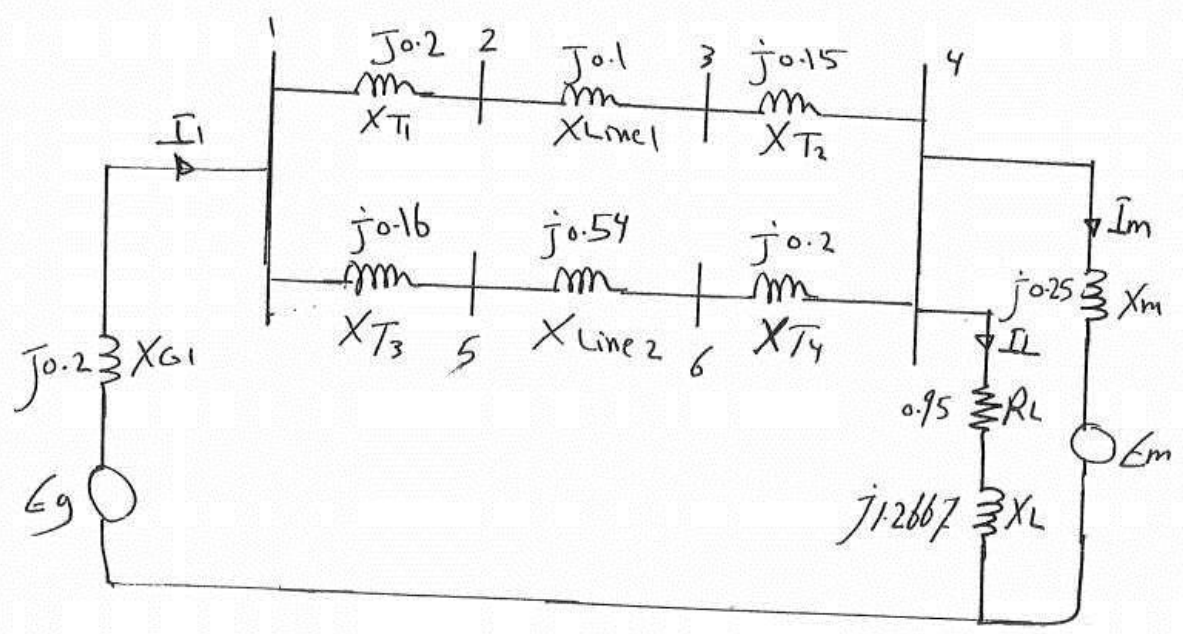 1
J0.2
2
J0.1
3
j0.15
4
XT1
XLine1
XT2
I1
j0.16
j0.54
j0.2
Im
j0.25
Xm
XT3
5
XLine2
6
XT4
IL
J0.2
XG1
0.95
RL
Em
Eg
j1.2667
XL